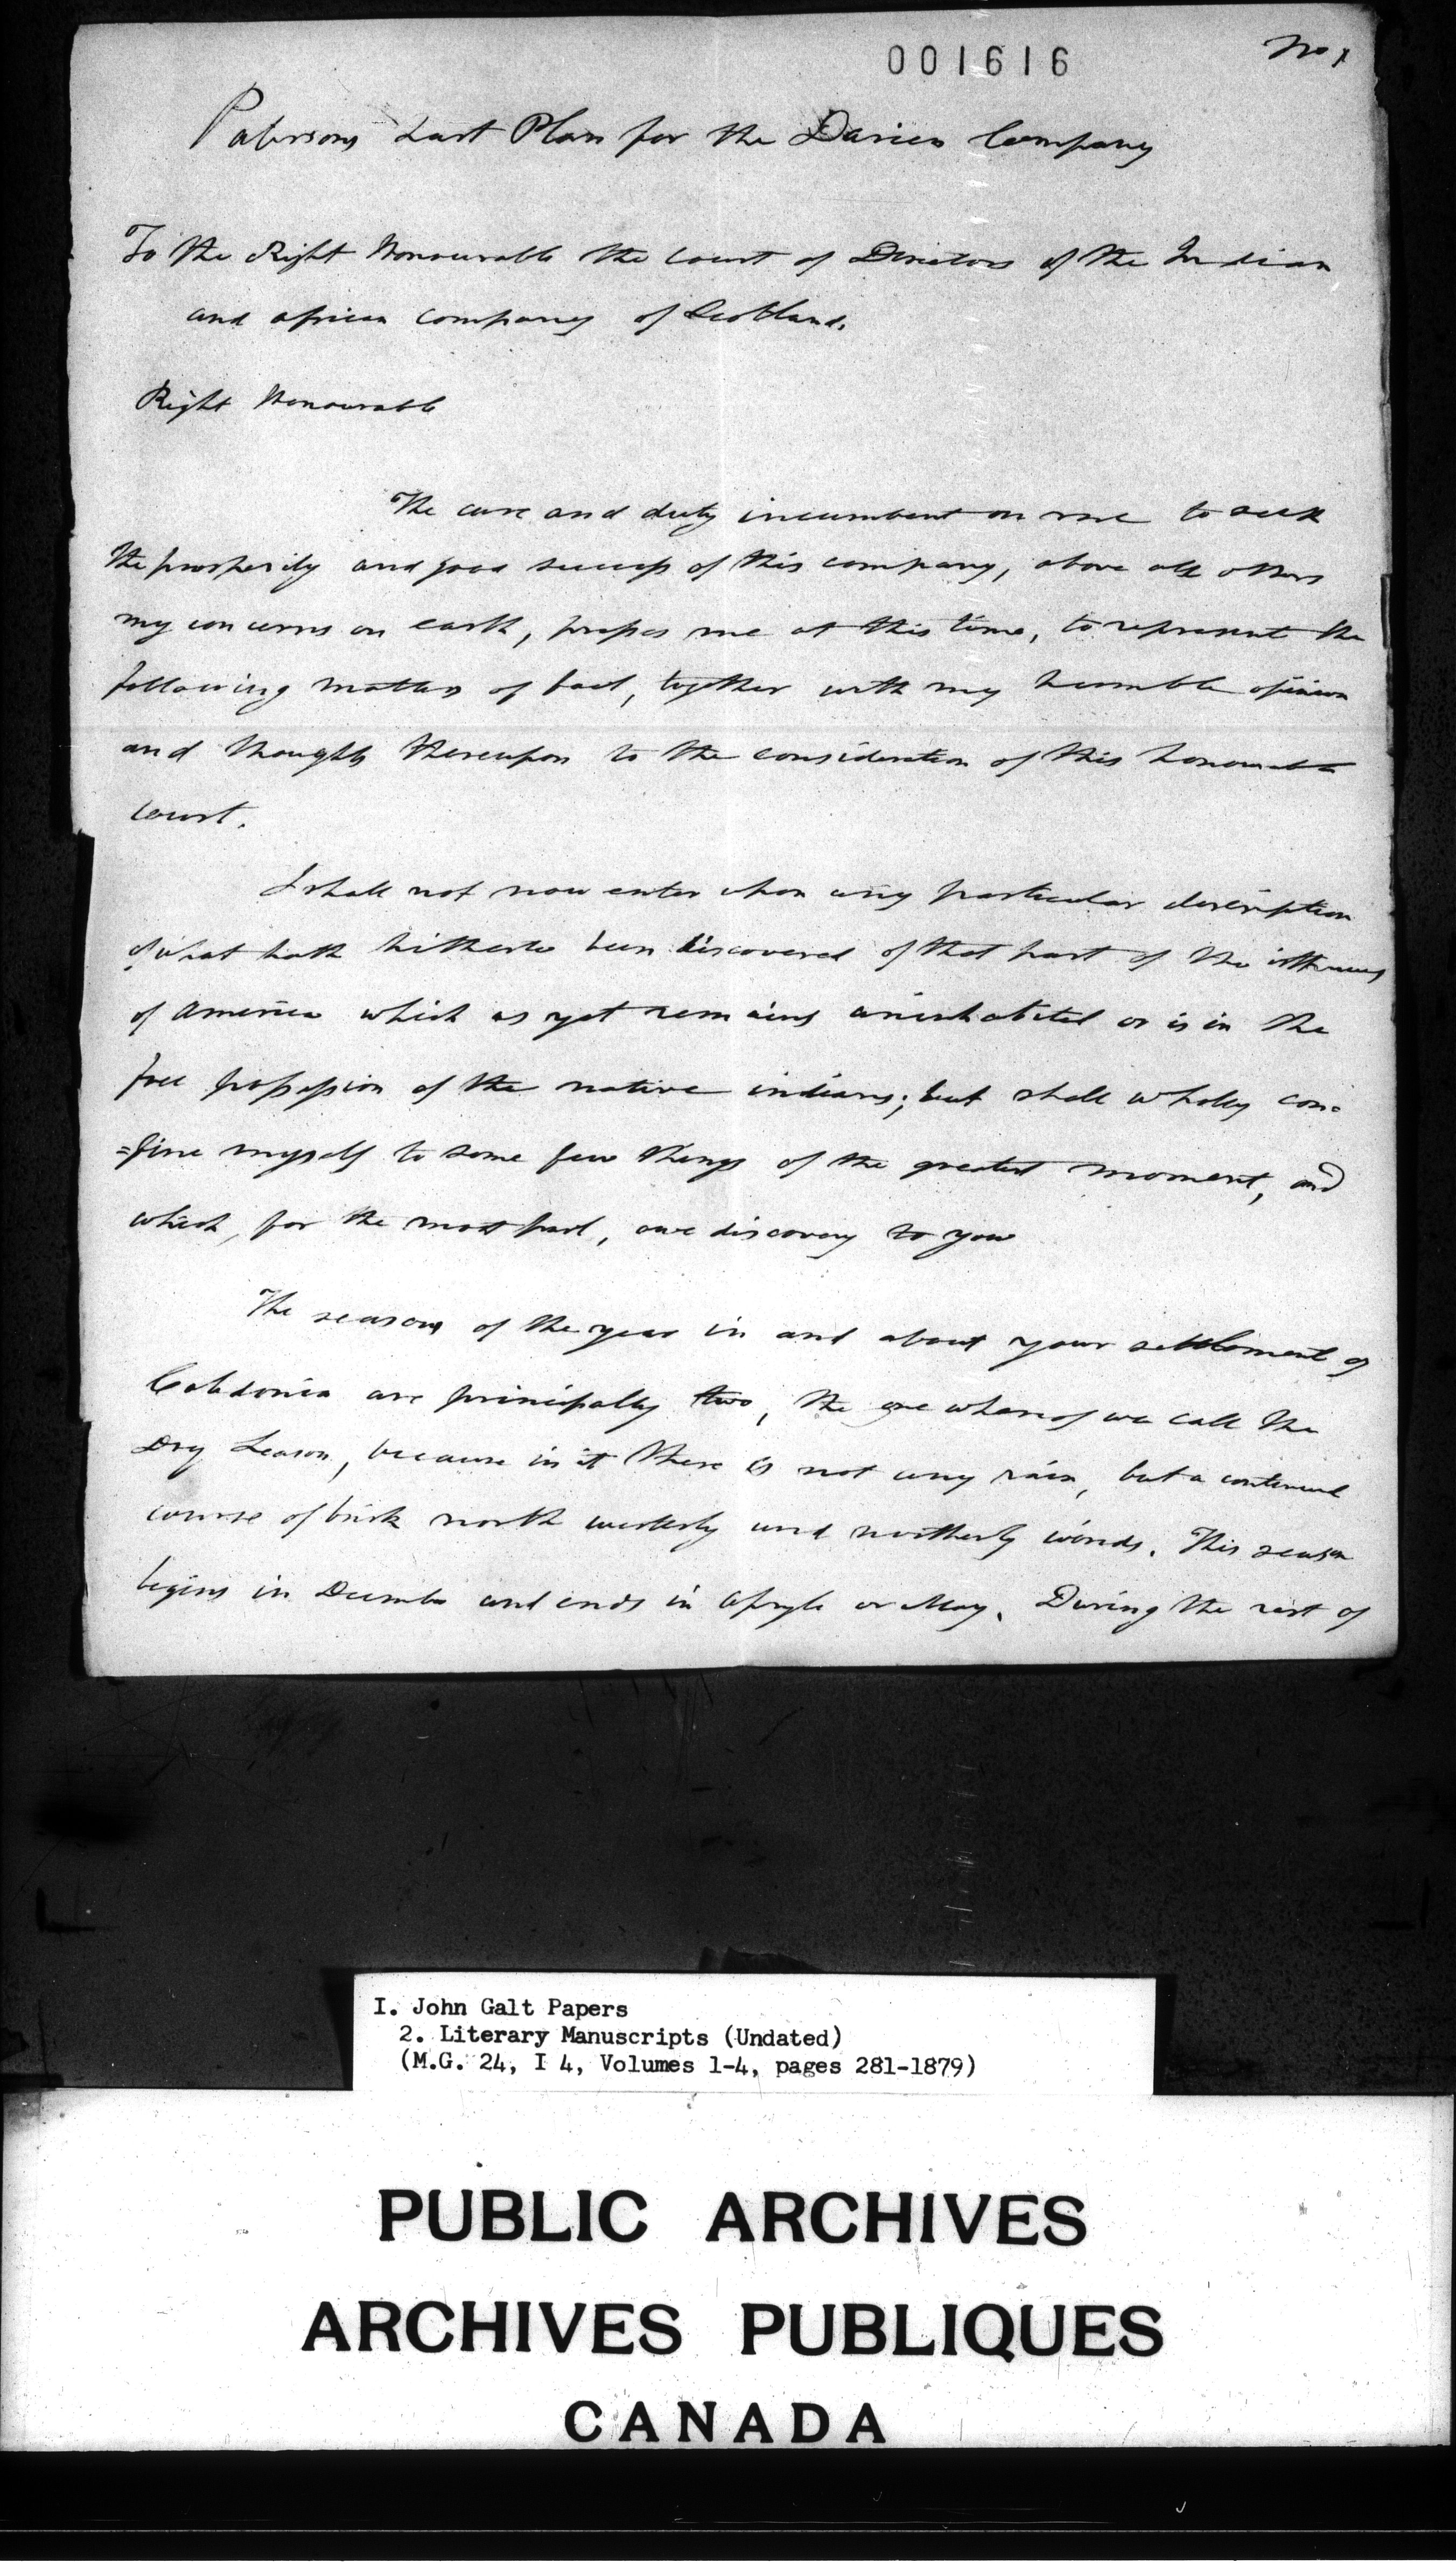 001616
No 1
Patersons Last Plan for the Darien Company
To the Right Honourable the Court of Directors of the Indian
and african company of Scotland.
Right Honourable
The care and duty incumbent on me to seek
the prosperity and good success of this company, above all others
my concerns on earth, presses me at this time, to represent the
following matters of fact, together with my humble opinion
and thoughts thereupon to the consideration of this honourable
court.
I shall not now enter upon any particular description
of what hath hitherto been discovered of that part of the isthmus
of America which as yet remains uninhabited or is in the
full possession of the native indians; but shall wholly con=
=fine myself to some few things of the greatest moment, and
which, for the most part, owe discovery to you
The seasons of the year in and about your settlement of
Caledonia are principally two, the one whereof we call the
Dry Season, because in it there is not any rain, but a continual
course of brisk north westerly and northerly winds. This season
begins in Decembr and ends in Apryle or May. During the rest of
I. John Galt Papers
2. Literary Manuscripts (Undated)
(M.G. 24, I 4, Volumes 1-4, pages 281-1879)
PUBLIC ARCHIVES
ARCHIVES PUBLIQUES
CANADA